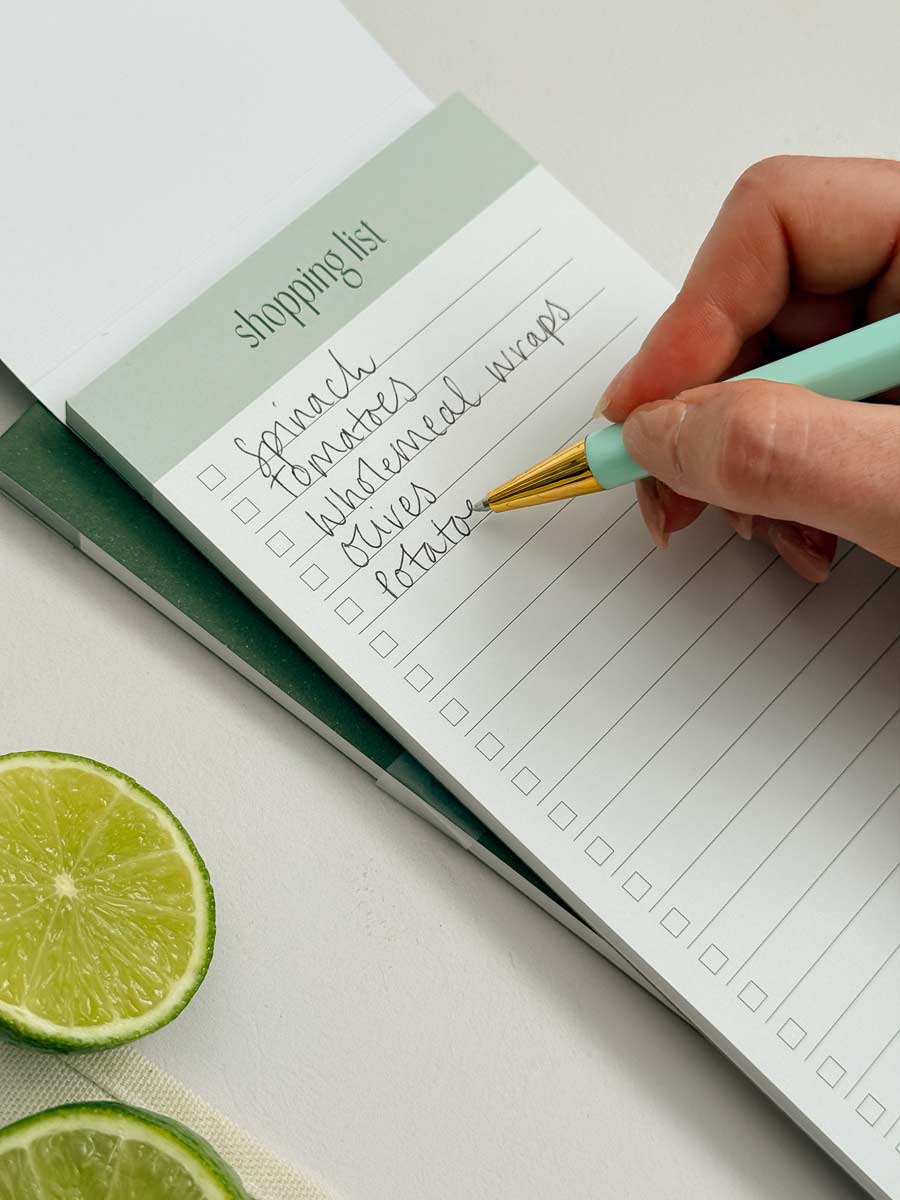 shopping list
Spinach
tomatoes
Wholemeal wraps
olives
Potatoe